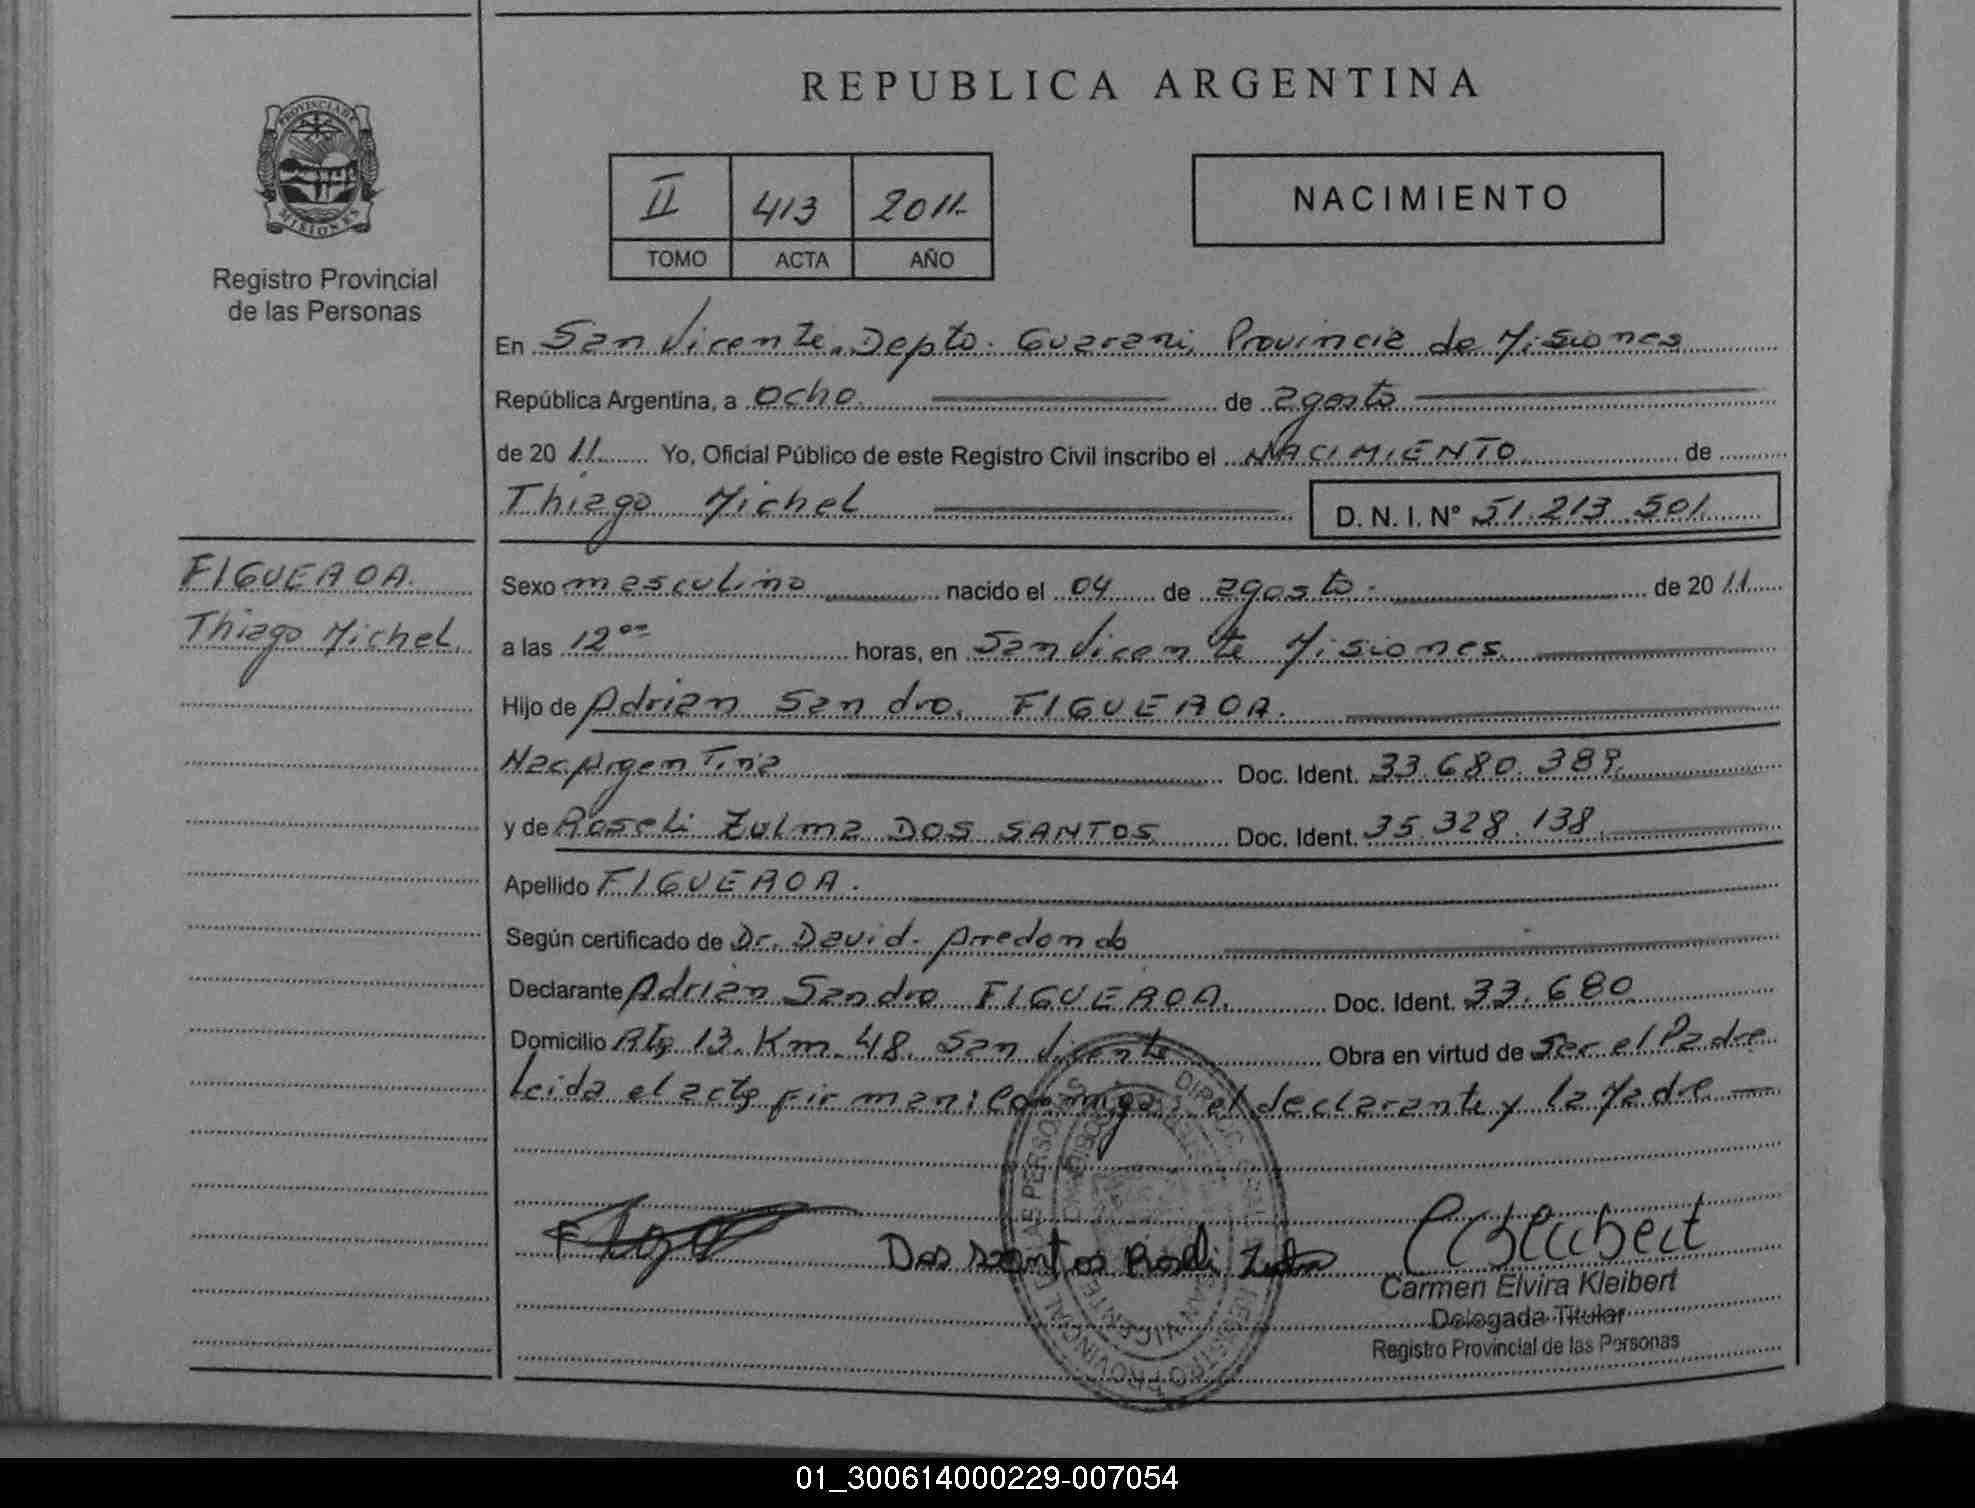 REPUBLICA ARGENTINA
PROVINCIA DE
MISIONES
Registro Provincial
de las Personas
II 413 2011
TOMO ACTA AÑO
NACIMIENTO
En San Vicente, Depto. Guarani, Provincia de Misiones
República Argentina, a ocho de agosto
de 2011 Yo, Oficial Público de este Registro Civil inscribo el NACIMIENTO de
Thiago Michel D. N. I. Nº 51.213.501
FIGUEROA
Thiago Michel
Sexo masculino nacido el 04 de agosto de 2011
a las 12 horas, en San Vicente Misiones
Hijo de Adrian Sandro FIGUEROA
Nac. Argentina Doc. Ident. 33.680.389
y de Roseli Zulma DOS SANTOS Doc. Ident. 35.328.138
Apellido FIGUEROA
Según certificado de Dr. David Arredondo
Declarante Adrian Sandro FIGUEROA Doc. Ident. 33.680
Domicilio Rta 13 Km 48 San Vicente Obra en virtud de Ser el Padre
Leida el acta firman conmigo el declarante y la Madre
Dos Santos Roseli
Carmen Elvira Kleibert
Delegada Titular
Registro Provincial de las Personas
REGISTRO PROVINCIAL DE LAS PERSONAS
SAN VICENTE
01_300614000229-007054